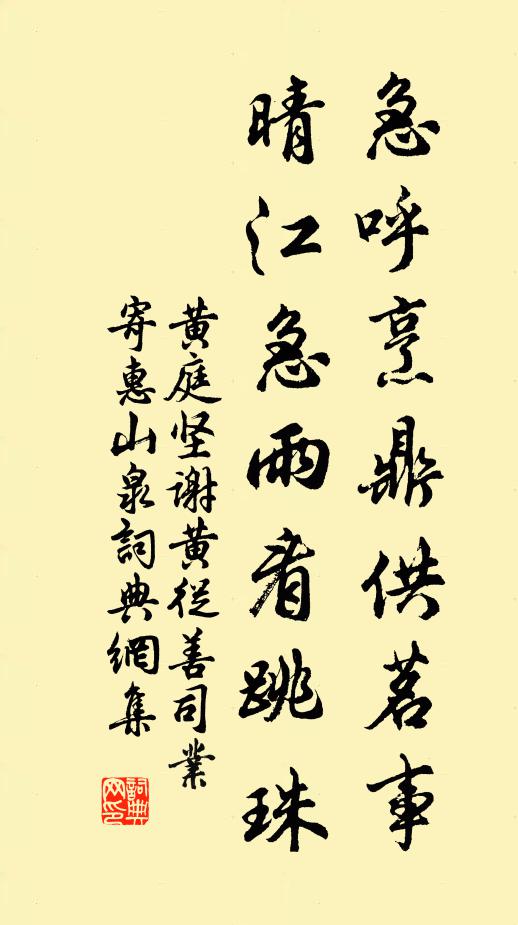 急呼烹鼎供茗事
晴江急雨看跳珠
黄庭坚谢黄從善司業
寄惠山泉詞典網集
詞典
网印